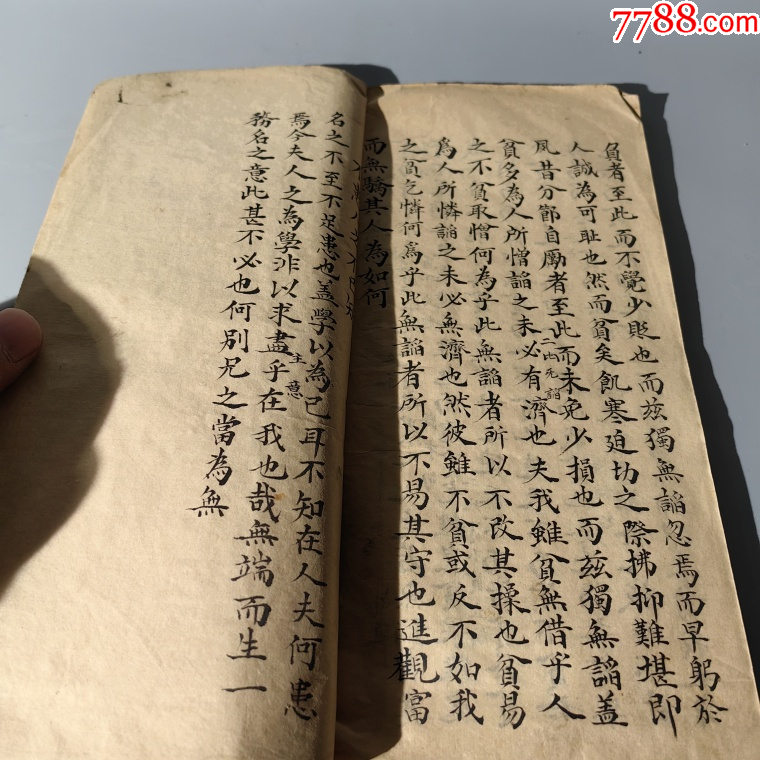 負者至此而不覺少貶也而茲獨無諂忽焉而早躬於
人誠為可耻也然而貧矣飢寒迫切之際拂抑難堪即
夙昔分節自勵者至此而未免少損也而茲獨無諂蓋
貧多為人所憎諂之未必有濟也夫我雖貧無借乎人
之不貧取憎何為乎此無諂者所以不改其操也貧易
為人所憐諂之未必無濟也然彼雖不貧或反不如我
之貧乞憐何為乎此無諂者所以不易其守也進觀富
而無驕其人為如何
名之不至不足患也盖學以為己耳不知在人夫何患
焉今夫人之為學非以求盡乎在我也哉無端而生一
主意
務名之意此甚不必也何別兄之當為無
7788.com